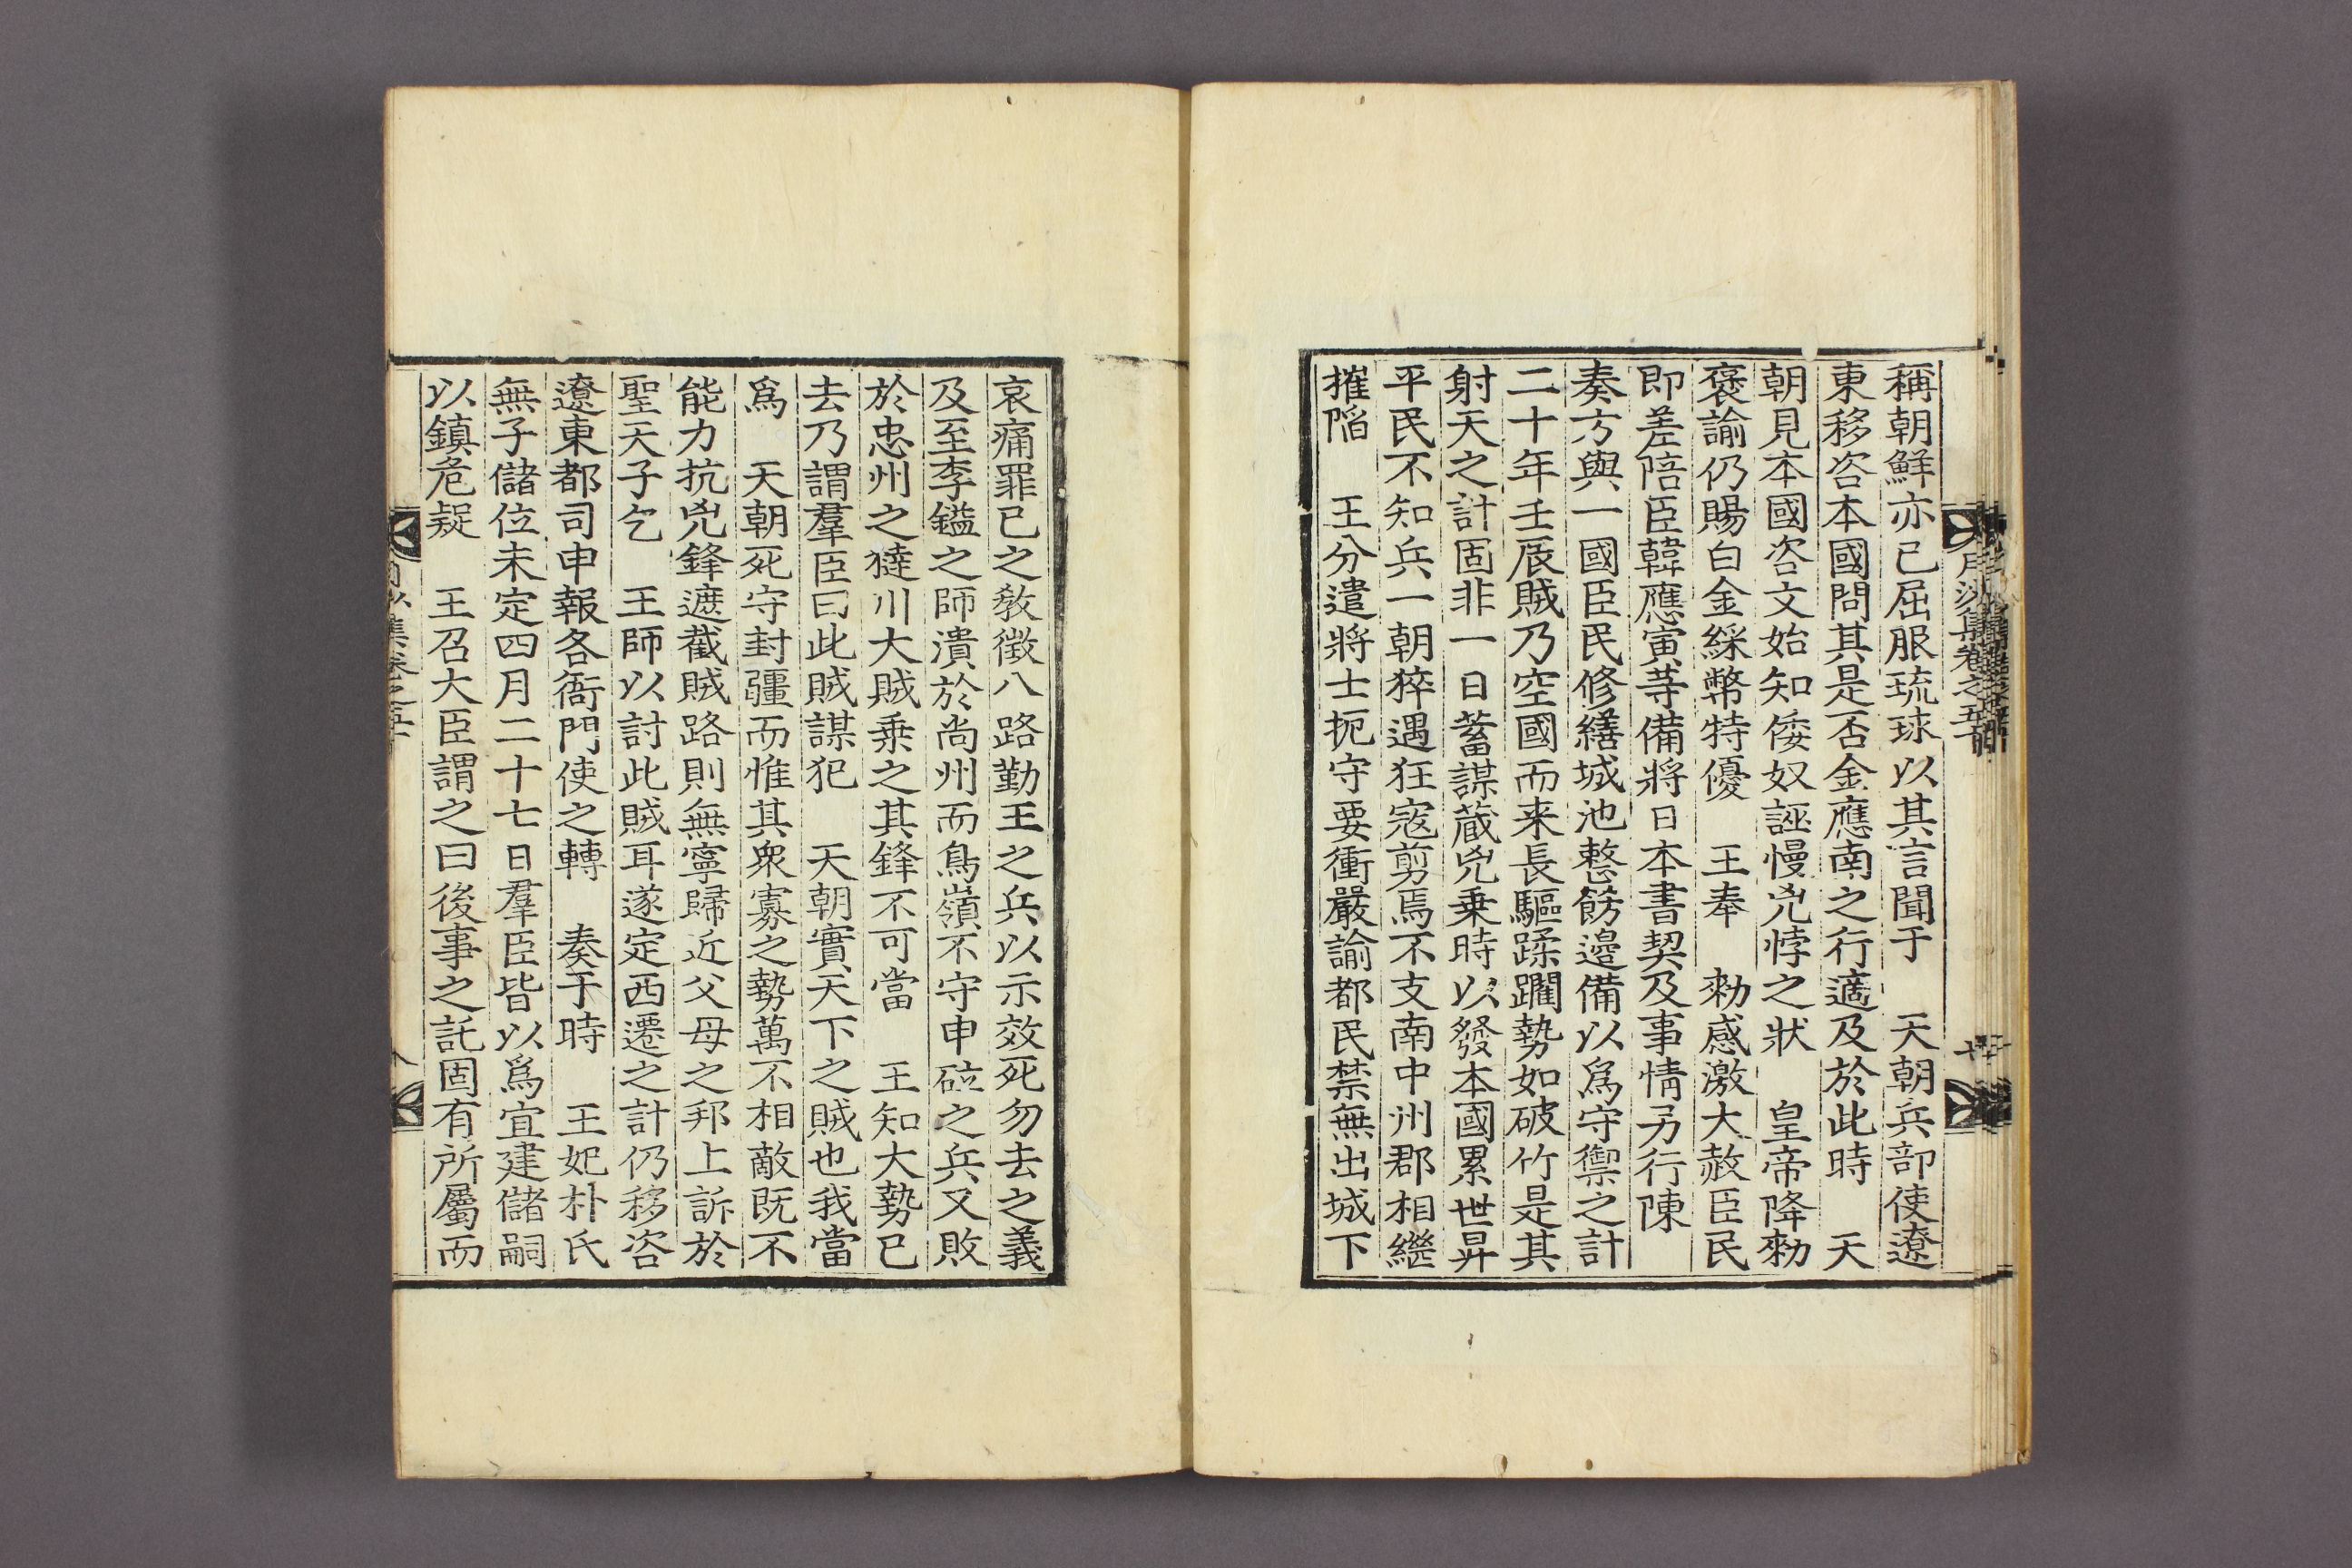 稱朝鮮亦已屈服琉球以其言聞于　天朝兵部使遼
東移咨本國問其是否金應南之行適及於此時　天
朝見本國咨文始知倭奴誣慢兇悖之狀　皇帝降勑
褒諭仍賜白金綵幣特優　王奉　勑感激大赦臣民
即差陪臣韓應寅等備將日本書契及事情另行陳
奏方與一國臣民修繕城池整飭邊備以爲守禦之計
二十年壬辰賊乃空國而来長驅蹂躙勢如破竹是其
射天之計固非一日蓄謀蔵兇乗時以發本國累世昇
平民不知兵一朝猝遇狂寇剪焉不支南中州郡相繼
摧陷　王分遣將士扼守要衝嚴諭都民禁無出城下
月沙集卷之五十
哀痛罪已之敎徵八路勤王之兵以示效死勿去之義
及至李鎰之師潰於尚州而鳥嶺不守申砬之兵又敗
於忠州之㺚川大賊乗之其鋒不可當　王知大勢已
去乃謂羣臣曰此賊謀犯　天朝實天下之賊也我當
爲　天朝死守封疆而惟其衆寡之勢萬不相敵既不
能力抗兇鋒遮截賊路則無寧歸近父母之邦上訴於
聖天子乞　王師以討此賊耳遂定西遷之計仍移咨
遼東都司申報各衙門使之轉　奏于時　王妃朴氏
無子儲位未定四月二十七日羣臣皆以爲宜建儲嗣
以鎮危疑　王召大臣謂之曰後事之託固有所屬而